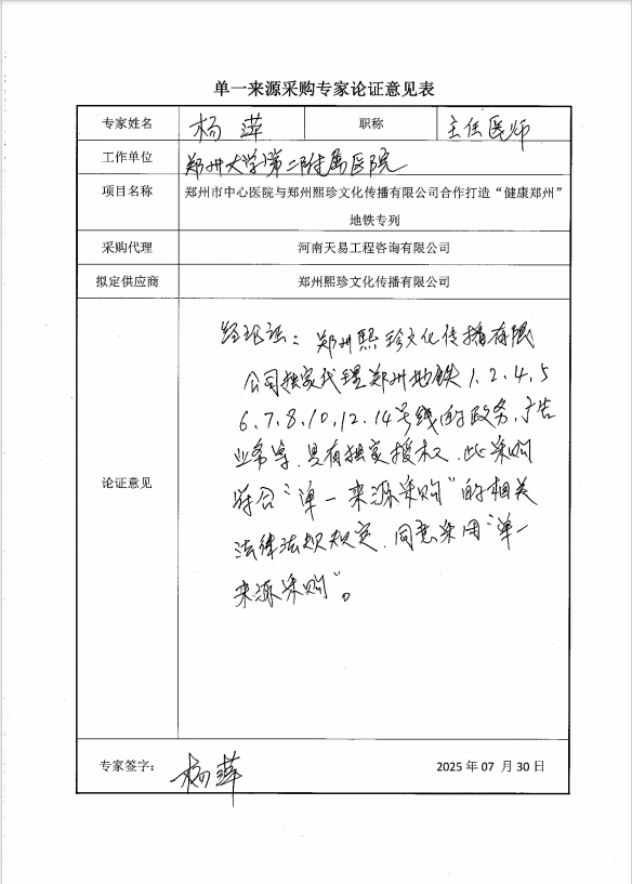 单一来源采购专家论证意见表
专家姓名 杨萍 职称 主任医师
工作单位 郑州大学第二附属医院
项目名称 郑州市中心医院与郑州熙珍文化传播有限公司合作打造“健康郑州”
地铁专列
采购代理 河南天易工程咨询有限公司
拟定供应商 郑州熙珍文化传播有限公司
论证意见
经论证：郑州熙珍文化传播有限
公司独家代理郑州地铁1.2.4.5
6.7.8.10.12.14号线的政务、广告
业务等，具有独家授权，此采购
符合“单一来源采购”的相关
法律法规规定，同意采用“单一
来源采购”。
专家签字： 杨萍 2025 年 07 月 30 日